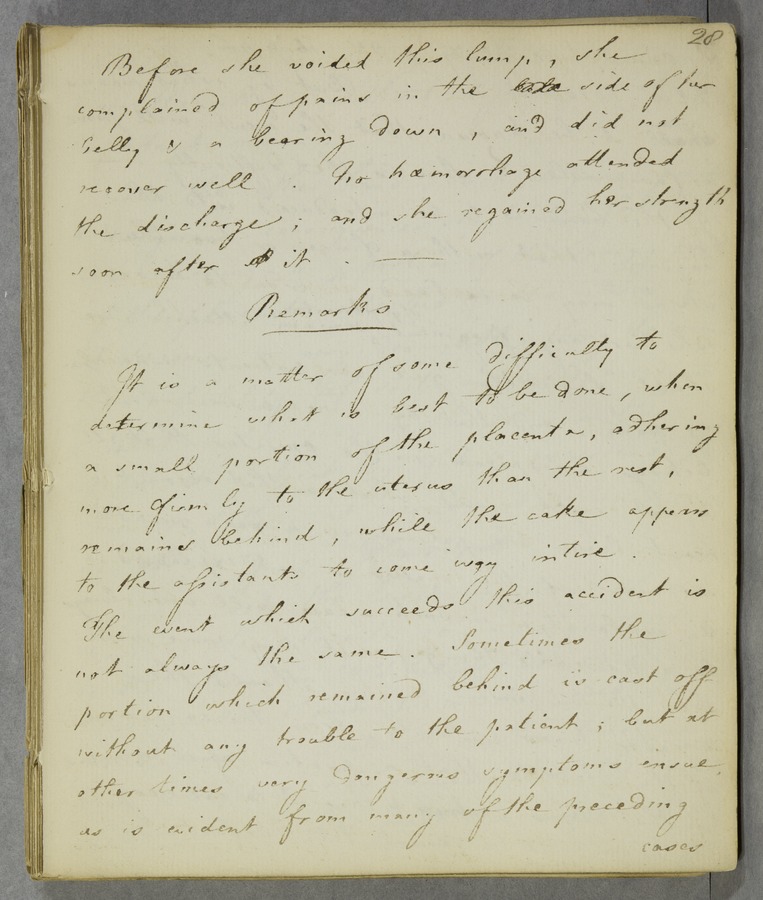 28
Before she voided this lump, she
complained of pains in the side of her
belly & a bearing down, and did not
recover well. No hæmorrhage attended
the discharge; and she regained her strength
soon after it. —
Remarks
It is a matter of some difficulty to
determine what is best to be done, when
a small portion of the placenta, adhering
more firmly to the uterus than the rest,
remains behind, while the cake appears
to the assistants to come away intire.
The event which succeeds this accident is
not always the same. Sometimes the
portion which remained behind is cast off
without any trouble to the patient; but at
other times very dangerous symptoms ensue,
as is evident from many of the preceding
cases